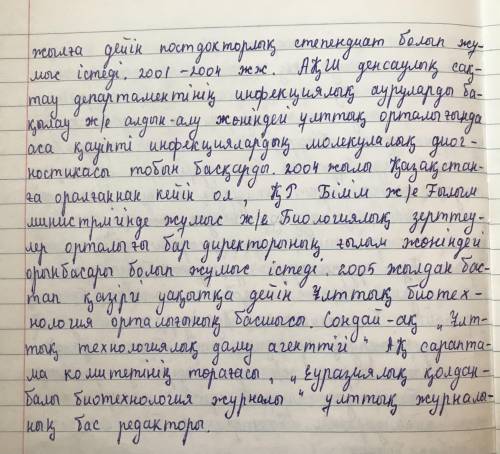 жылға дейін постдокторлық степендиат болып жұ-
мыс істеді. 2001-2004 жж. АҚШ денсаулық сақ-
тау департаментінің инфекциялық ауруларды ба-
қылау ж/е алдын-алу жөніндей ұлттық орталығында
аса қауіпті инфекциялардың молекулалық диог-
ностикасы тобын басқарды. 2004 жылы Қазақстан-
ға оралғаннан кейін ол, ҚР Білім ж/е Ғылым
министрлігінде жұмыс ж/е Биологиялық зерттеу-
лер орталығы бар директорының ғылым жөніндей
орынбасары болып жұмыс істеді. 2005 жылдан бас-
тап қазіргі уақытқа дейін Ұлттық биотех-
нология орталығының басшысы. Сондай-ақ „Ұлт-
тық технологиялық даму агенттігі" АҚ сарапта-
ма комитетінің торағасы, „Еуразиялық қолдан-
балы биотехнология журналы" ұлттық журналы-
ның бас редакторы.